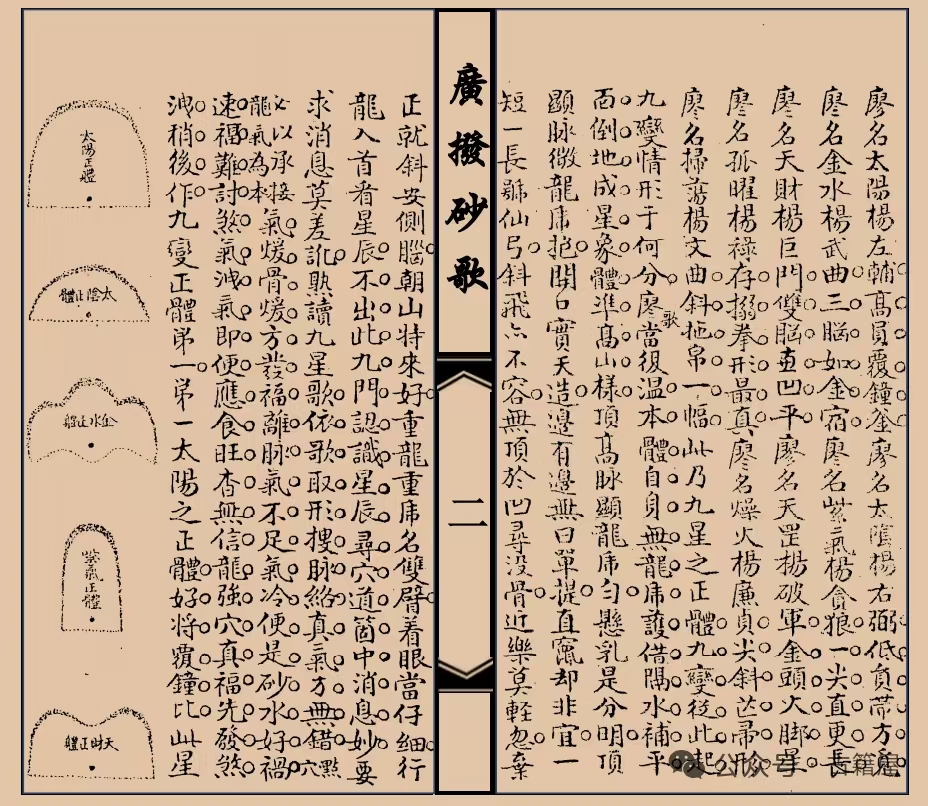 廖名太陽楊左輔高員覆鐘釜廖名太陰楊右弼低員帶方
廖名金水楊武曲三腦如金宿廖名紫氣楊貪狼一尖直更長
廖名天財楊巨門雙腦直凹平廖名天罡楊破軍金頭火脚星
廖名孤曜楊祿存搦拳形最真廖名燥火楊廉貞尖斜芒帚形
廖名掃蕩楊文曲斜拖帛一幅此乃九星之正體九變從此起
九變情形于何分廖歌當後温本體自身無龍虎護借隅水補平
面倒地成星象體準高山樣頂高脉顯龍虎勻懸乳是分明頂
顯脉微龍虎抱開口實天造邊有邊無曰單提直竄却非宜一
短一長號仙弓斜飛亦不容無頂於凹尋没骨近樂莫輕忽棄
廣撥砂歌
二
正就斜安側腦朝山特來好重龍重虎名雙臂着眼當仔細行
龍入首看星辰不出此九門認識星辰尋穴道箇中消息妙要
求消息莫差訛熟讀九星歌依歌取形摟脉絡真氣方無錯點穴
必以承接龍氣為本氣煖骨煖方發福離脉氣不足氣冷便是砂水好禍
速福難討煞氣洩氣即便應食旺杳無信龍強穴真福先發煞
洩稍後作九變正體第一第一太陽之正體好將覆鐘比此星
太陽正體
太陰正體
金水正體
紫氣正體
天財正體
公众号